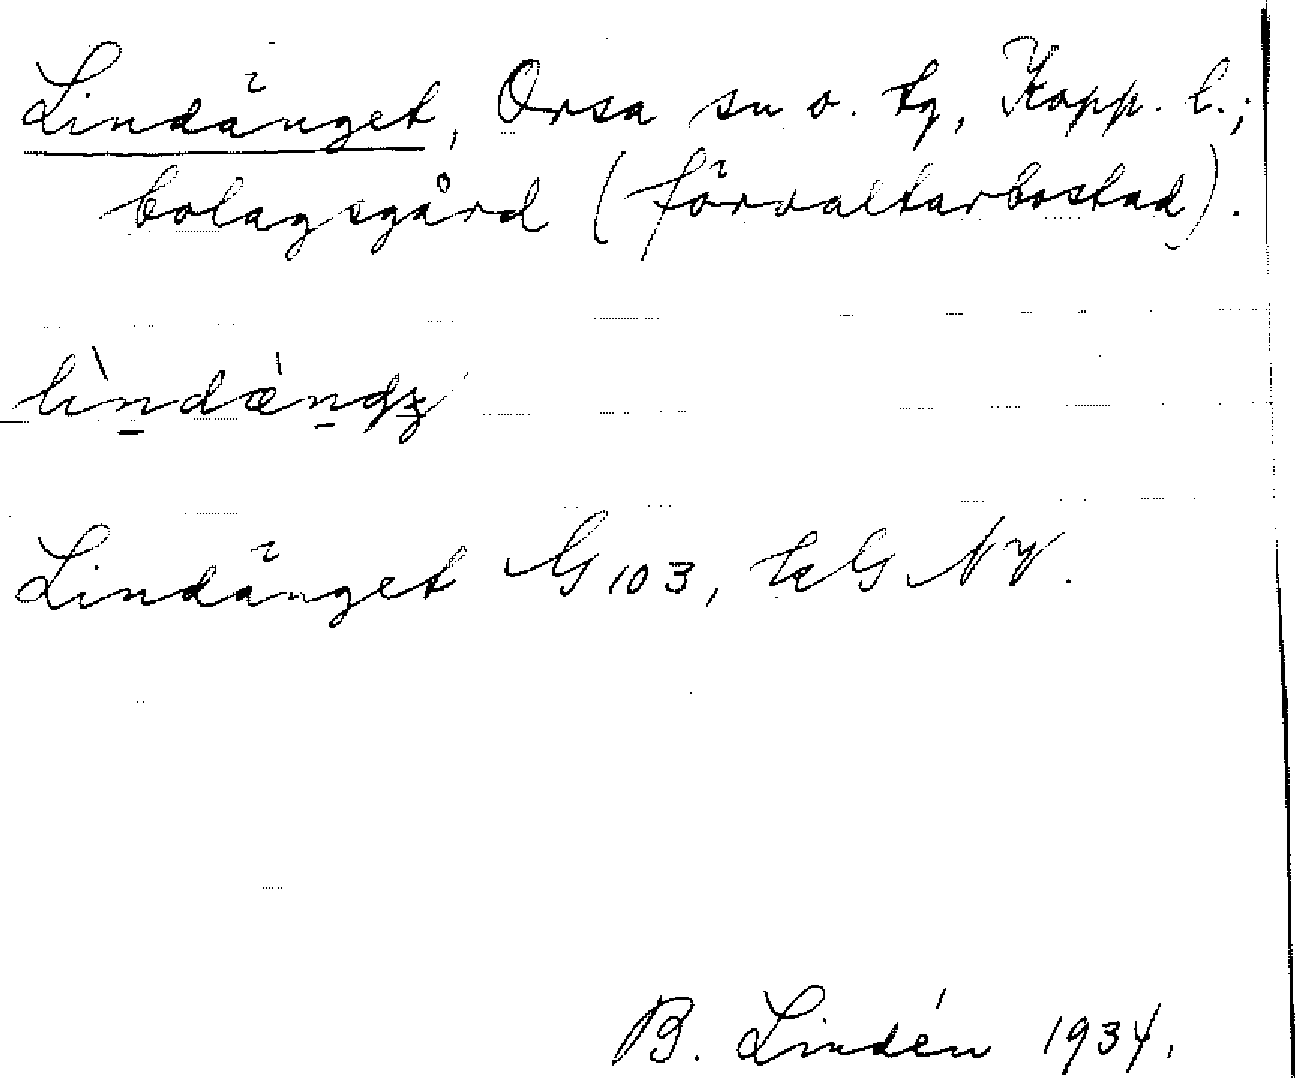 Lindänget, Orsa sn o. tg, Kopp. l.;
bolagsgård (förvaltarbostad).
lìndæ̀ndʒ
Lindänget G 103, EG NV.
B. Lindén 1934.